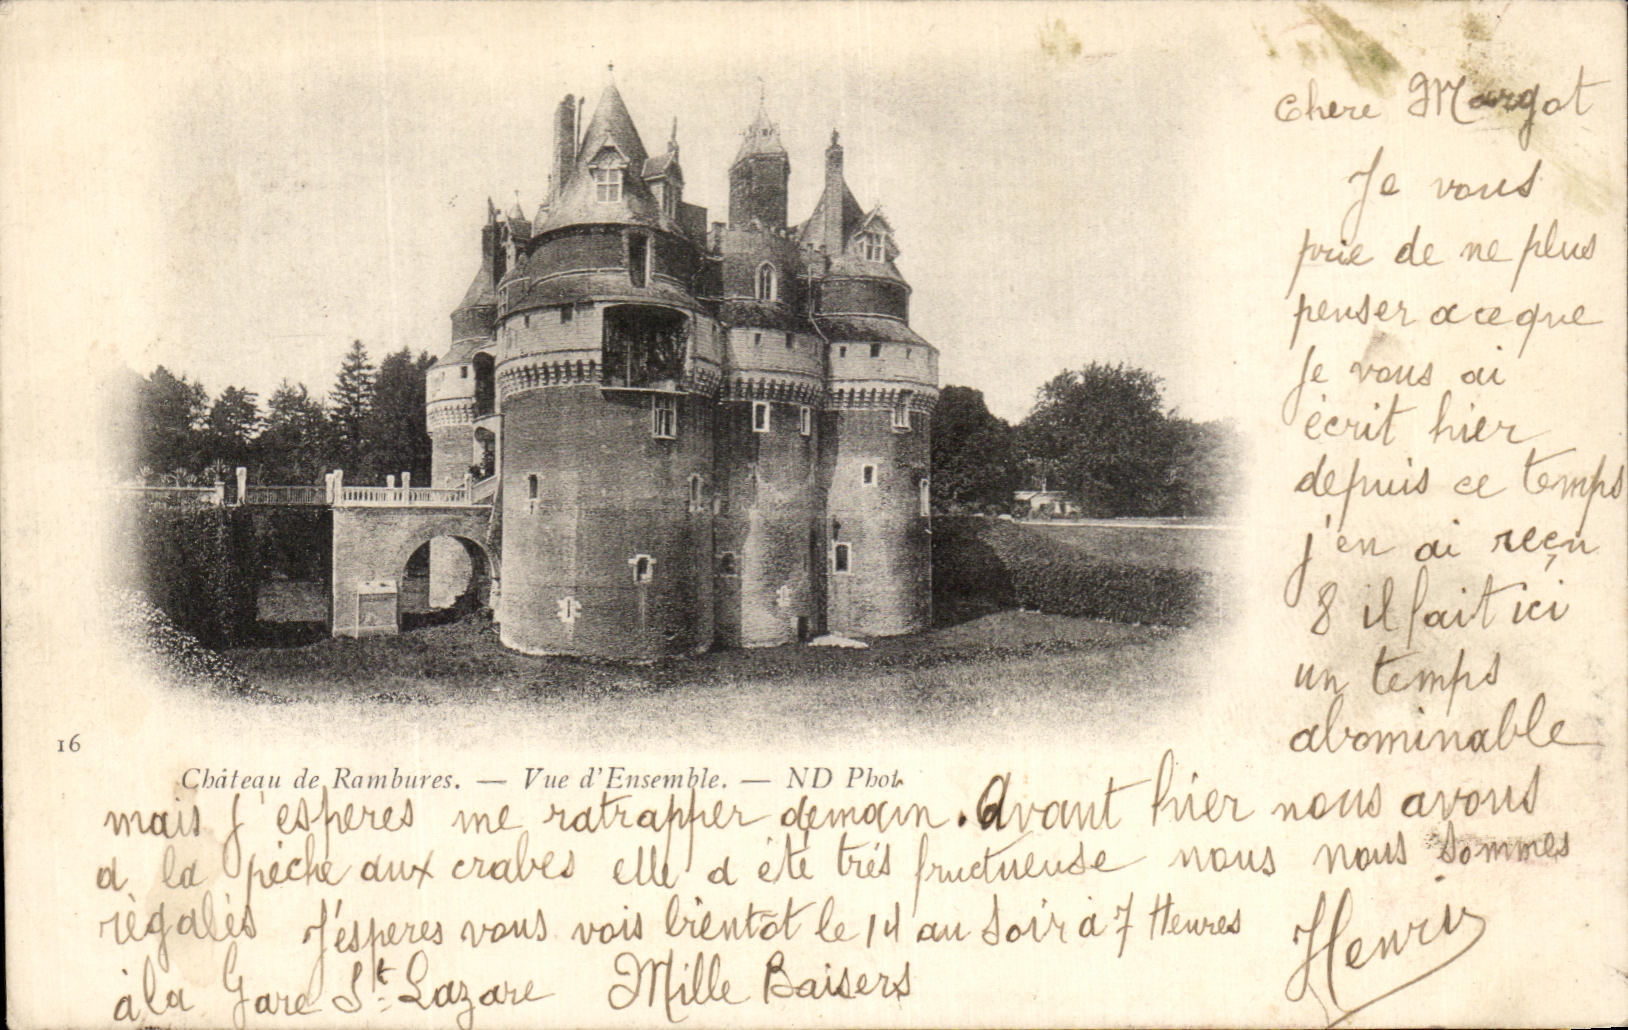 chere Margot
Je vous
prie de ne plus
penser a ce que
je vous ai
écrit hier
depuis ce temps
j'en ai reçu
8 il fait ici
un temps
abominable
16
Château de Rambures. — Vue d'Ensemble. — ND Phot.
mais j'esperes me ratrapper demain. Avant hier nous avons
a la pêche aux crabes elle a été trés fructueuse nous nous sommes
régalés J'ésperes vous vois bientôt le 14 au soir à 7 Heures
à la Gare St. Lazare Mille Baisers
Henry